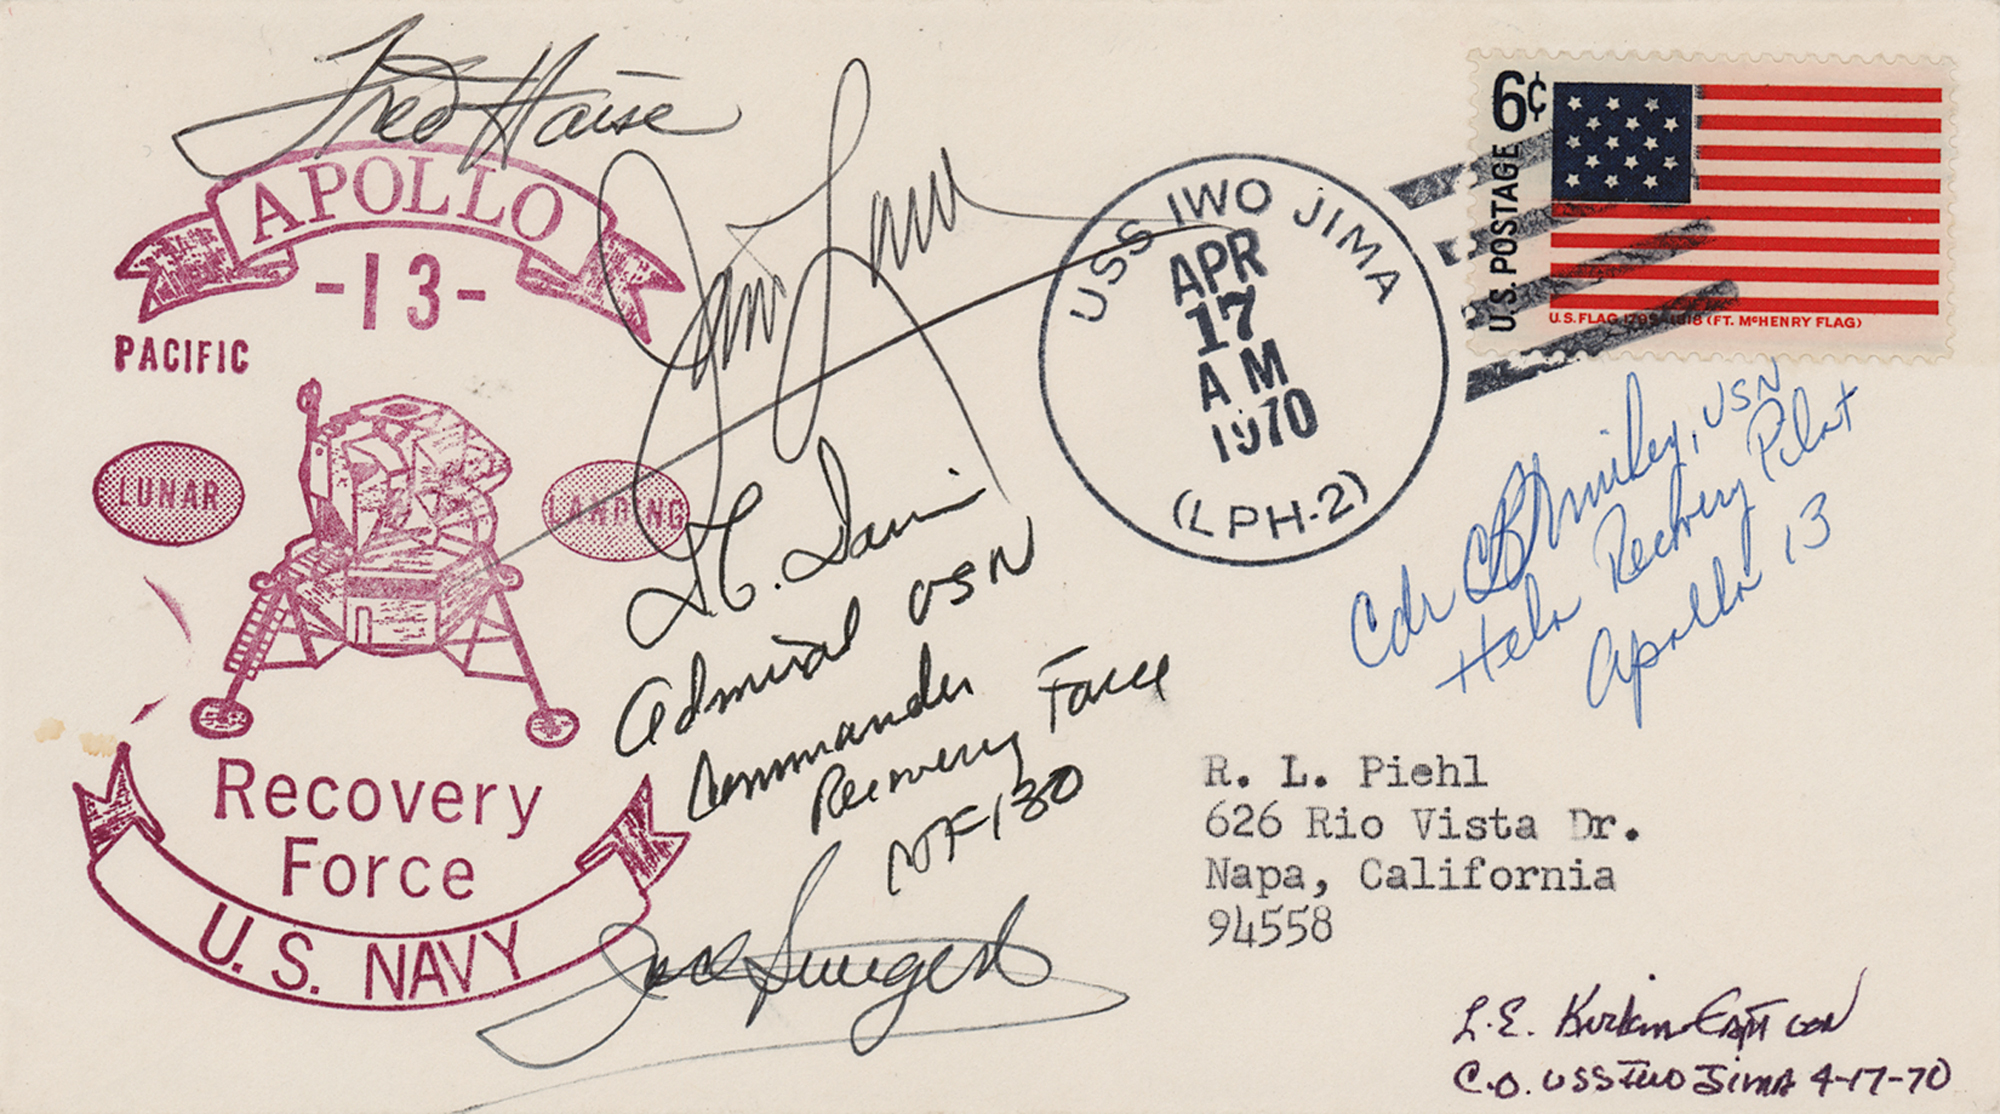 Fred Haise
APOLLO
-13-
PACIFIC
LUNAR
LANDING
Recovery
Force
U.S. NAVY
Jim Lovell
D C. Davis
Admiral USN
Commander
Recovery Force
TF 130
Jack Swigert
USS IWO JIMA
APR
17
AM
1970
(LPH-2)
6¢
U.S. POSTAGE
U.S. FLAG 1795-1818 (FT. McHENRY FLAG)
Cdr C B Smiley, USN
Helo Recovery Pilot
Apollo 13
R. L. Piehl
626 Rio Vista Dr.
Napa, California
94558
L.E. Kirkemo CAPT USN
C.O. USS IWO JIMA 4-17-70